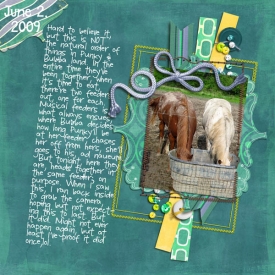 June 2,
2009
Hard to believe it,
but this is NOT
the natural order of
things in Punky &
Bubba land. In the
entire time they've
been together, when
it's time to eat
there're two feeders
out, one for each.
Musical feeders is
what always ensues
where Bubba decides
how long Punky'll be
at her feeder, chases
her off from hers, she'll
goes to his, ad nauseum.
But tonight, here they
are, heads together in
the same feeder, on
purpose. When I saw
this, I ran back inside
to grab the camera,
hoping but not expect-
ing this to last. But
it did. Might not ever
happen again, but at
least I've proof it did
once, lol.